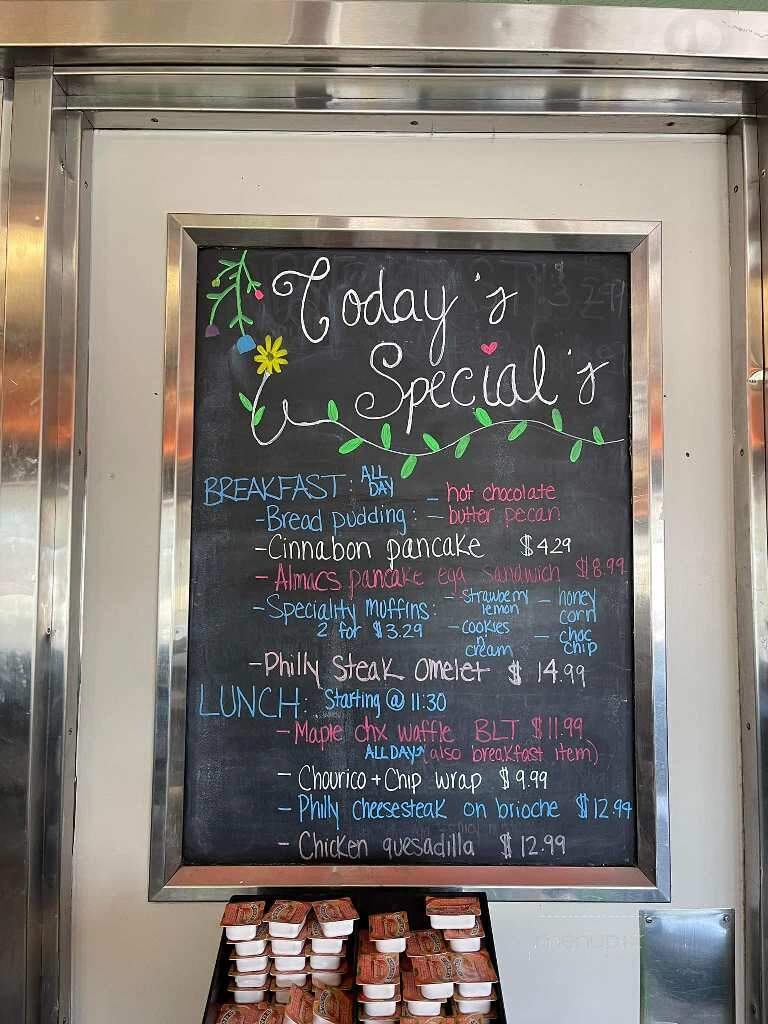 Today's
Special's
BREAKFAST: ALL DAY
- Bread pudding: - hot chocolate
- butter pecan
- Cinnabon pancake $4.29
- Almacs pancake egg sandwich $18.99
- Speciality muffins: - strawberry lemon - honey corn
2 for $3.29 - cookies n' cream - choc chip
- Philly steak omelet $14.99
LUNCH: Starting @ 11:30
- Maple chx waffle BLT $11.99
ALL DAY (also breakfast item)
- Chourico + Chip wrap $9.99
- Philly cheesesteak on brioche $12.99
- Chicken quesadilla $12.99